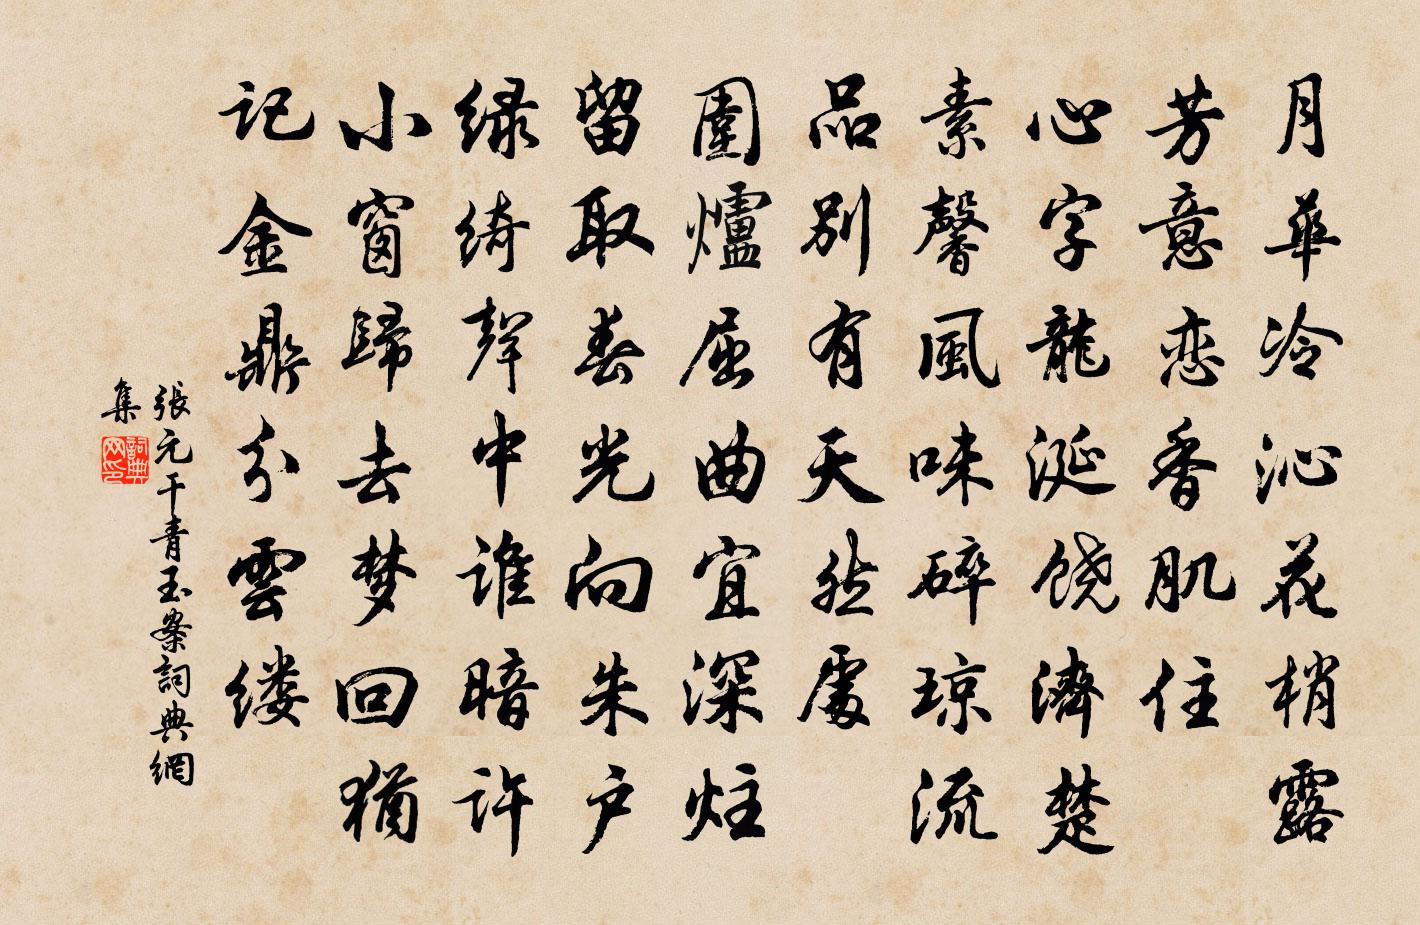 月華冷沁花梢露
芳意恋香肌住
心字龍涎饶濟楚
素馨風味碎琼流
品別有天然處
圍爐屈曲宜深炷
留取春光向朱户
绿绮聲中谁暗许
小窗歸去梦回猶
记金鼎分雲缕
張元干青玉案詞典網
集
詞典
网印